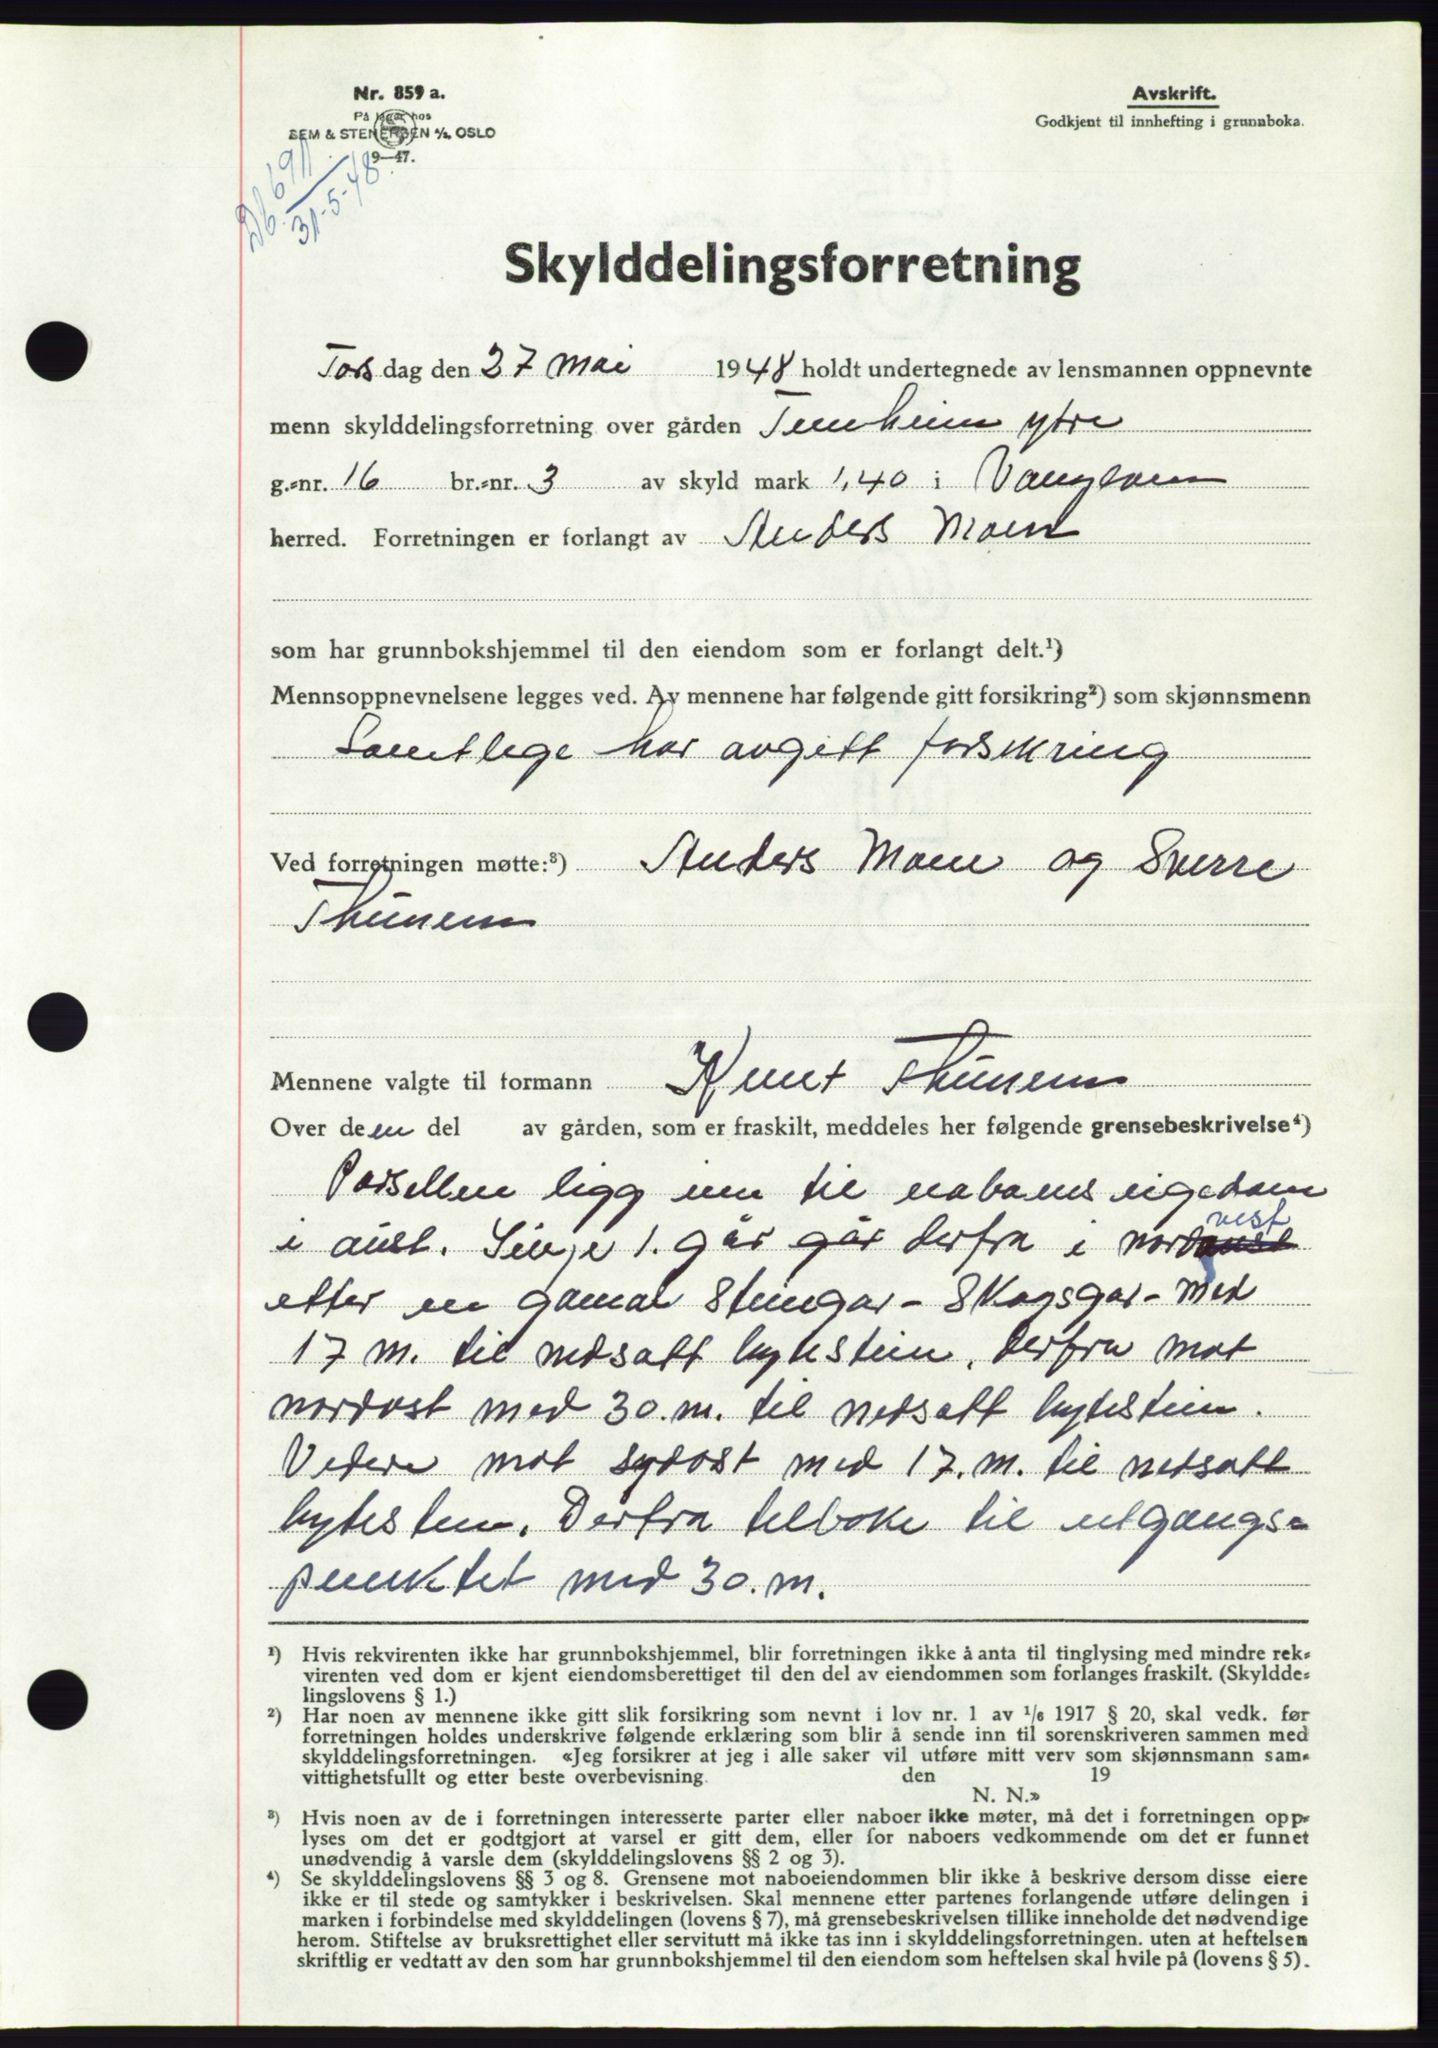 Nr. 859 a.
På lager hos
SEM & STENERSEN A/S OSLO
9—47.
Avskrift.
Godkjent til innhefting i grunnboka.
Db. 691
31-5-48
Skylddelingsforretning
Tors dag den 27 mai 1948 holdt undertegnede av lensmannen oppnevnte
menn skylddelingsforretning over gården ytre
g.-nr. 16 br.-nr. 3 av skyld mark 1,40 i Vangsem
herred. Forretningen er forlangt av Anders Moen
som har grunnbokshjemmel til den eiendom som er forlangt delt.¹)
Mennsoppnevnelsene legges ved. Av mennene har følgende gitt forsikring²) som skjønnsmenn
Samtlege har avgitt forsikring
Ved forretningen møtte:³) Anders Moen og Sverre
Thunem
Mennene valgte til formann Knut Thunem
Over deen del av gården, som er fraskilt, meddeles her følgende grensebeskrivelse⁴)
Parsellen ligg inn til naboens eigedom
i aust. Linje 1. går går derfra i nordaust vest
etter en gamal Steingar - Skogsgar - med
17 m. til nedsatt bytestein, derfra mot
nordost med 30. m. til nedsatt bytestein.
Videre mot sydost med 17. m. til nedsatt
bytestein. Derfra tilbake til utgangs-
punktet med 30. m.
¹) Hvis rekvirenten ikke har grunnbokshjemmel, blir forretningen ikke å anta til tinglysing med mindre rek-
virenten ved dom er kjent eiendomsberettiget til den del av eiendommen som forlanges fraskilt. (Skyldde-
lingslovens § 1.)
²) Har noen av mennene ikke gitt slik forsikring som nevnt i lov nr. 1 av ¹/₆ 1917 § 20, skal vedk. før
forretningen holdes underskrive følgende erklæring som blir å sende inn til sorenskriveren sammen med
skylddelingsforretningen. «Jeg forsikrer at jeg i alle saker vil utføre mitt verv som skjønnsmann sam-
vittighetsfullt og etter beste overbevisning. den 19
N. N.»
³) Hvis noen av de i forretningen interesserte parter eller naboer ikke møter, må det i forretningen opp-
lyses om det er godtgjort at varsel er gitt dem, eller for naboers vedkommende om det er funnet
unødvendig å varsle dem (skylddelingslovens §§ 2 og 3).
⁴) Se skylddelingslovens §§ 3 og 8. Grensene mot naboeiendommen blir ikke å beskrive dersom disse eiere
ikke er til stede og samtykker i beskrivelsen. Skal mennene etter partenes forlangende utføre delingen i
marken i forbindelse med skylddelingen (lovens § 7), må grensebeskrivelsen tillike inneholde det nødvendige
herom. Stiftelse av bruksrettighet eller servitutt må ikke tas inn i skylddelingsforretningen. uten at heftelsen
skriftlig er vedtatt av den som har grunnbokshjemmel til den eiendom som heftelsen skal hvile på (lovens § 5).